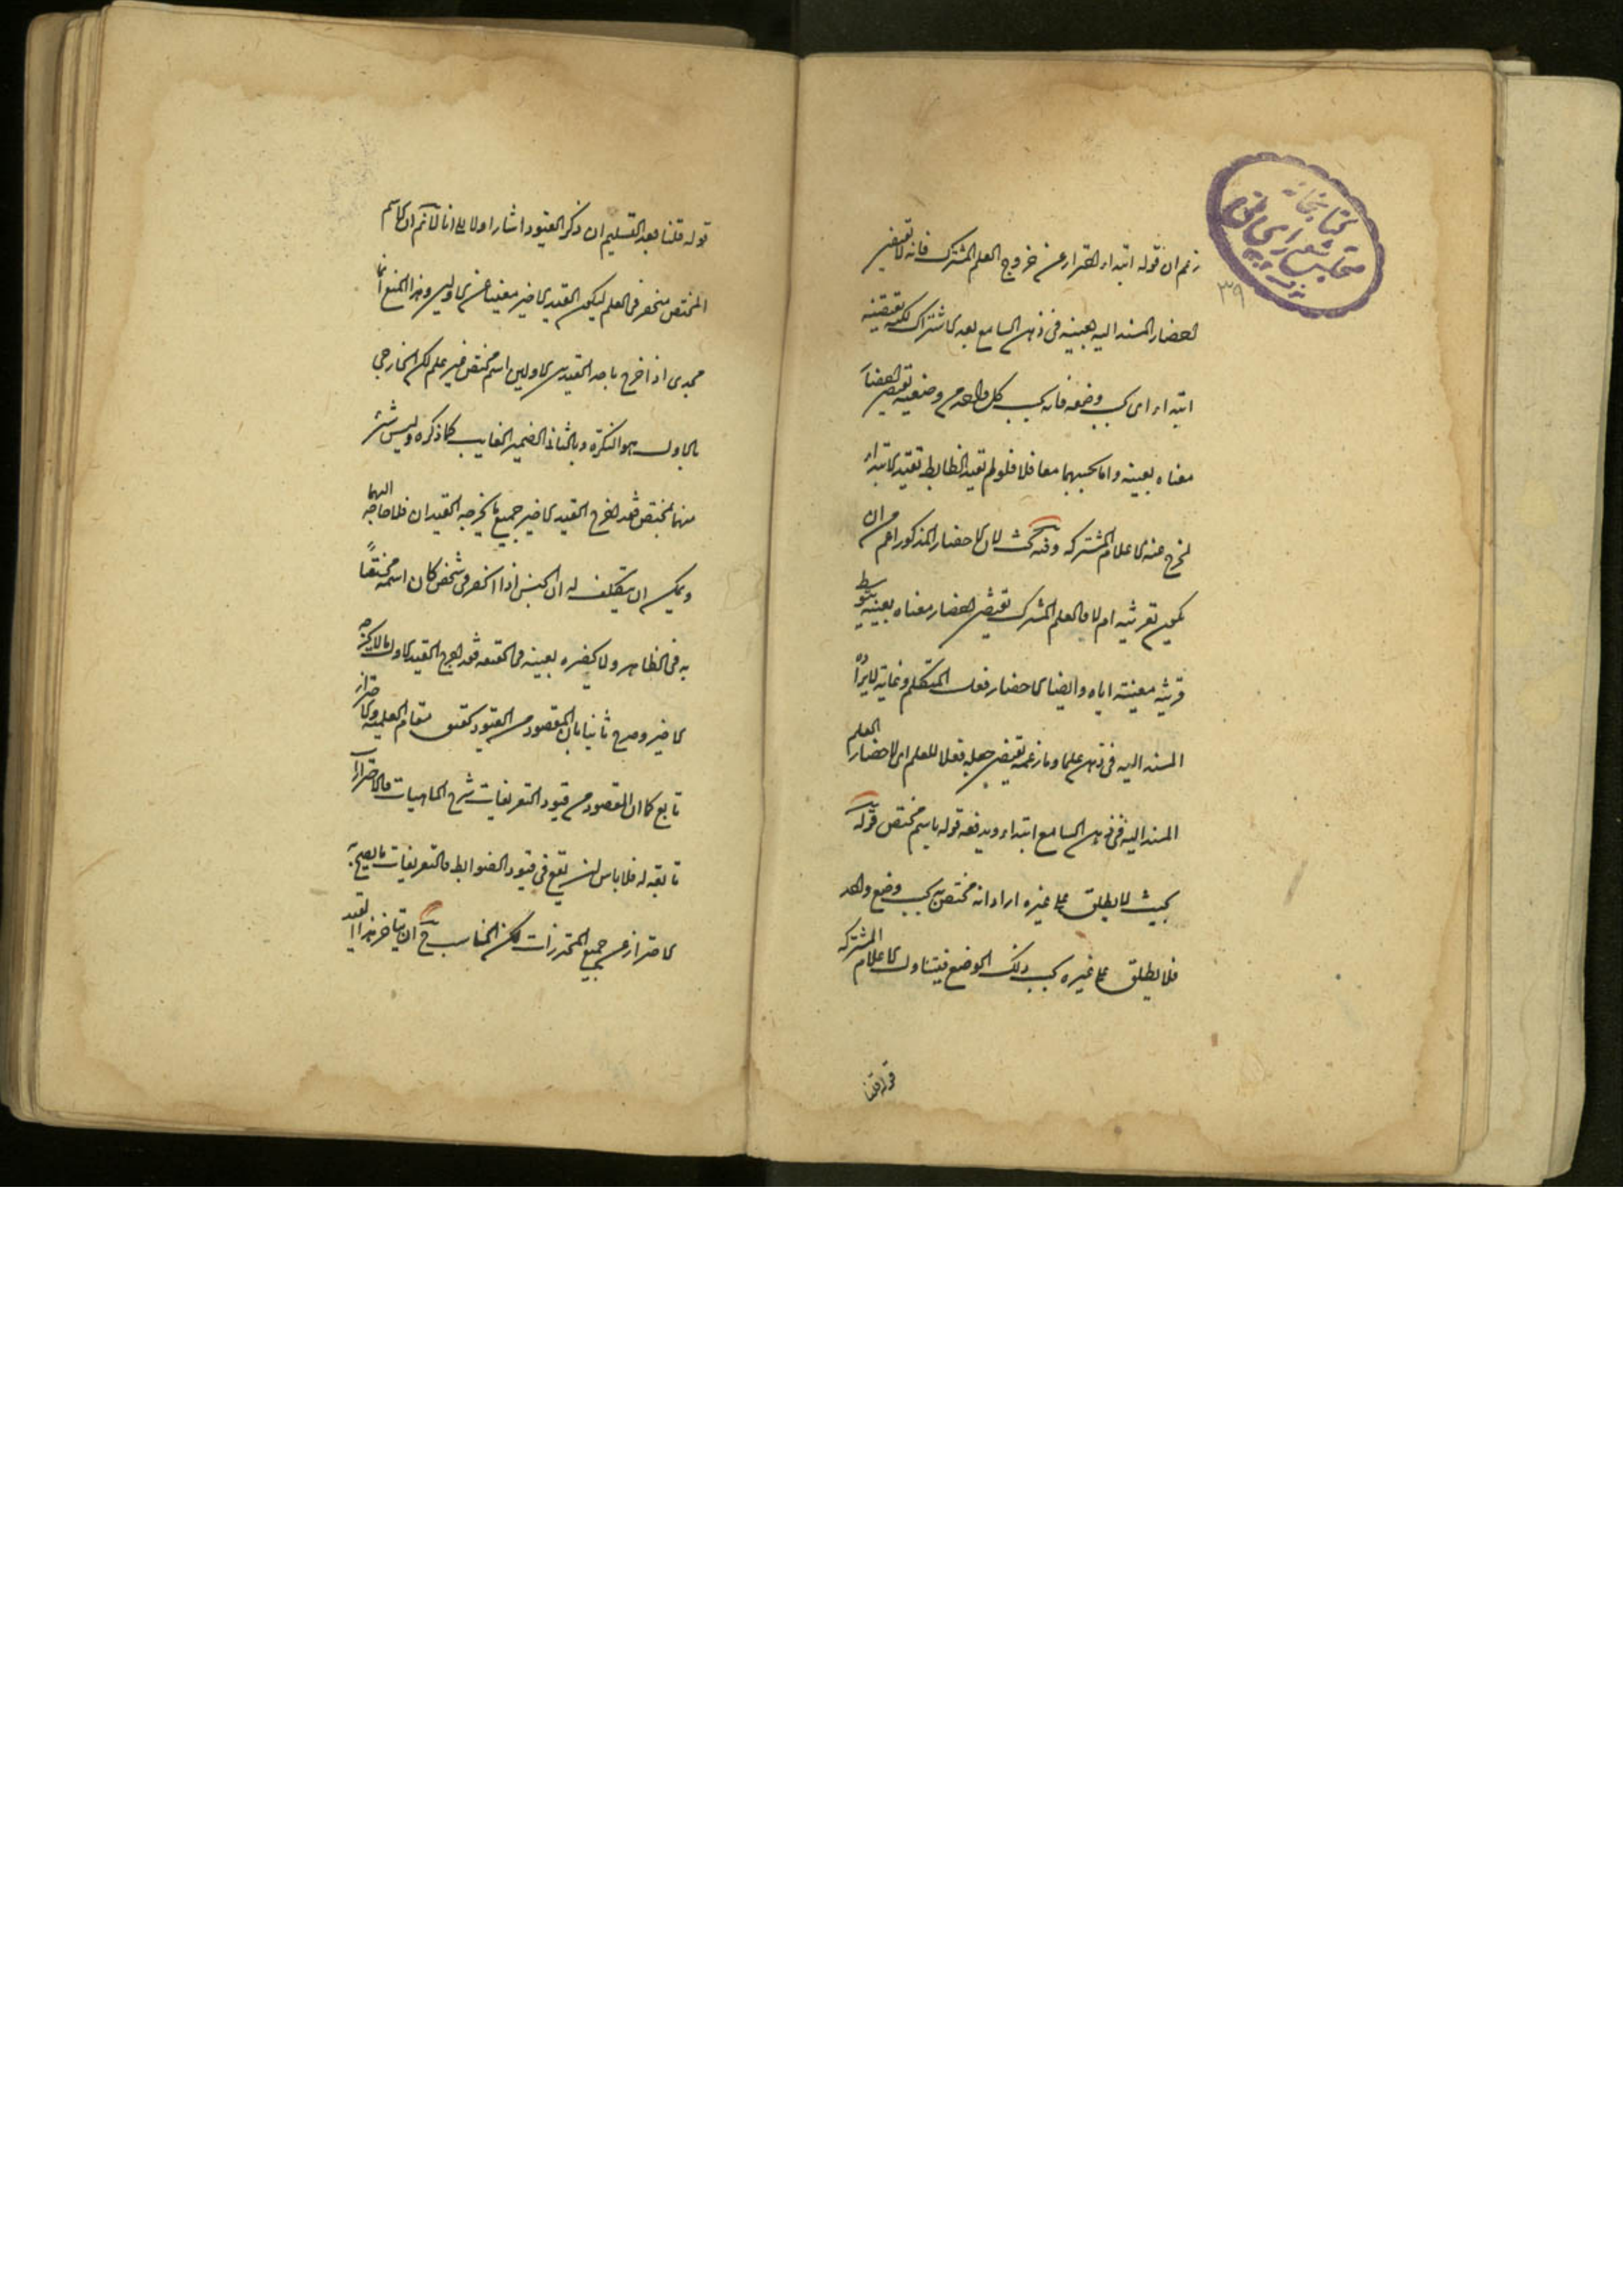 كتابخانه
مجلس شورای ملی
۳۹
زعم ان قوله ابتداء احتراز عن خروج العلم المشترك فانه لا يقتضى
احضار المسند اليه بعينه فى ذهن السامع بعد الاشتراك لكنه يقتضيه
ابتداء اى بحسب وضعه فانه بحسب كل واحد من وضعيه يقتضى احضار
معناه بعينه واما بحسبهما معا فلا فلو لم تقيد الضابط بقيد الابتداء
لخرج عنه الاعلام المشتركه وفيه بحث لان الاحضار المذكور اعم من ان
يكون بقرينة ام لا والعلم المشترك يقتضى احضار معناه بعينه بتوسط
قرينة معينة اياه وايضا الاحضار فعل المتكلم وغايته لايراد
المسند اليه فى ذهن علما وما زعمه يقتضى جعله فعلا للعلم اى لاحضار العلم
المسند اليه فى ذهن السامع ابتداء ويدفعه قوله باسم مختص قوله
بحيث لا يطلق على غيره اراد انه مختص به بحسب وضع واحد
فلا يطلق على غيره بحسب ذلك الوضع فيتناول الاعلام المشتركه
قوله قلنا
قوله قلنا بعد التسليم ان ذكر القيود اشار اولا الى انا لا نم ان الاسم
المختص منحصر فى العلم ليكون القيد الاخير مغنيا عن الاولين وهذا المنع انما
يجدى اذا خرج باحد القيدين الاولين اسم مختص غير علم لكن الخارج
بالاول هو النكرة وبالثانى الضمير الغايب كما ذكره وليس شئ
منهما بمختص فقد اخرج القيد الاخير جميع ما يخرجه القيدان فلا حاجه اليهما
ويمكن ان يتكلف له ان الجنس اذا انحصر فى شخص كان اسمه مختصاً
به فى الظاهر ولا يحضره بعينه فى الحقيقه فقد اخرج القيد الاول ما لا يخرجه
الاخير وصرح ثانيا بان المقصود من القيود تحقيق مقام العلمية والاحتراز
تابع كما ان المقصود من قيود التعريفات شرح الماهيات والاحترازات
تابعة له فلا باس ان يقع فى قيود الضوابط والتعريفات ما يصح به
الاحتراز عن جميع المحترزات لكن المناسب ح ان يتاخر هذا القيد